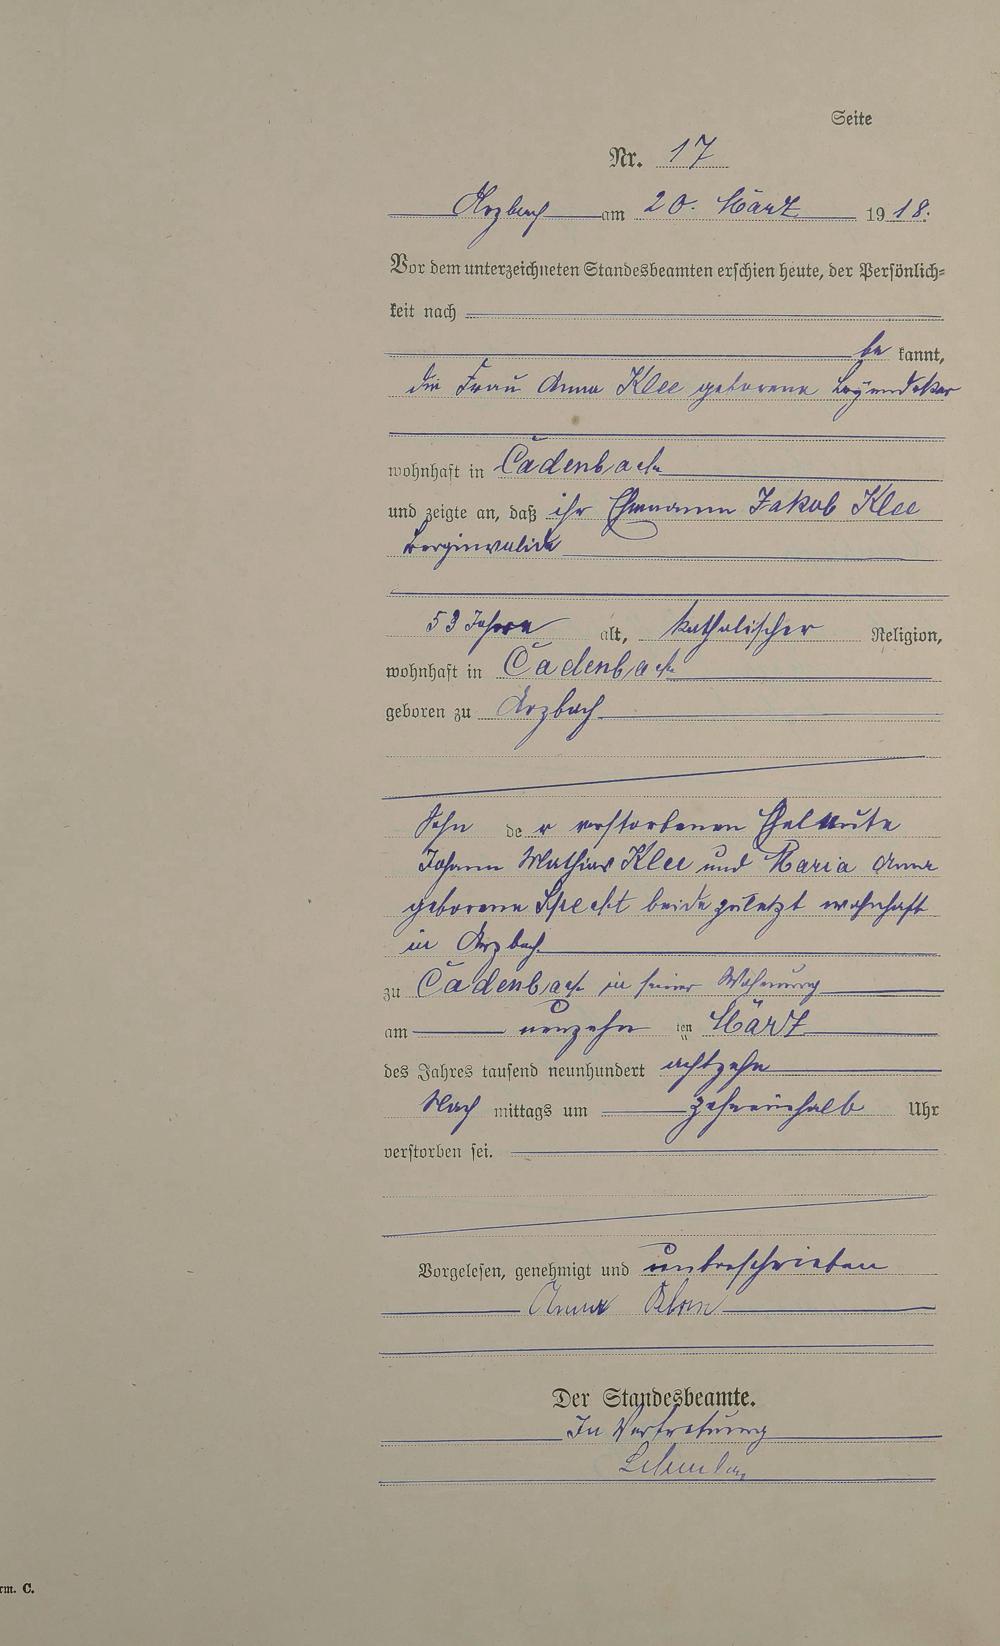 Seite
Nr. 17
Arzbach am 20. März 1918.
Vor dem unterzeichneten Standesbeamten erschien heute, der Persönlich=
keit nach
be kannt,
die Frau Anna Klee geborene
wohnhaft in Cadenbach
und zeigte an, daß ihr Ehemann Jakob Klee
Berginvalide
53 Jahre alt, katholischer Religion,
wohnhaft in Cadenbach
geboren zu Arzbach
Sohn der verstorbenen Eheleute
Johann Mathias Klee und Maria Anna
geborene Specht beide zuletzt wohnhaft
in Arzbach
zu Cadenbach in seiner Wohnung
am neunzehn ten März
des Jahres tausend neunhundert achtzehn
Nach mittags um zehneinhalb Uhr
verstorben sei.
Vorgelesen, genehmigt und unterschrieben
Anna Klee
Der Standesbeamte.
In Vertretung
rm. C.